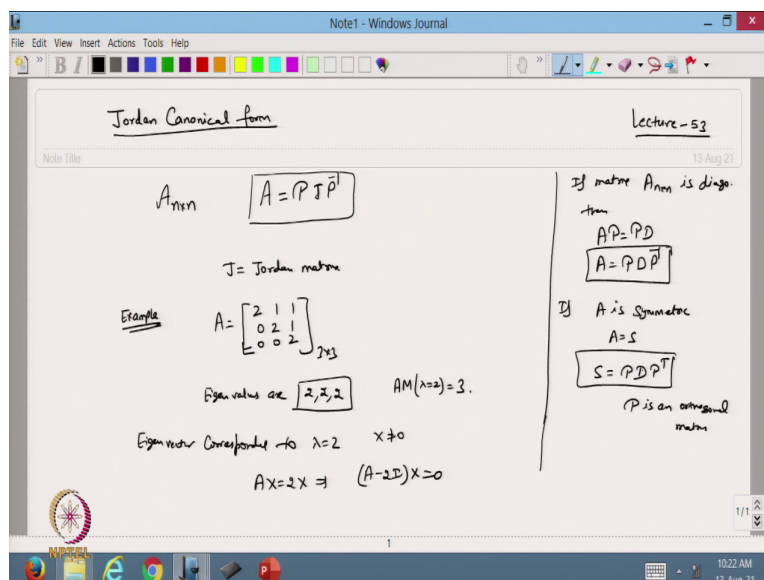 Note1 - Windows Journal
File Edit View Insert Actions Tools Help
B I
Jordan Canonical form
Lecture-53
Note Title
13-Aug-21
A_{n×n} A = PJP^{-1}
J = Jordan matrix
Example A = [2 1 1
0 2 1
0 0 2]_{3×3}
Eigen values are 2,2,2 AM(λ=2)=3.
Eigen vector Corresponds to λ=2 x≠0
Ax=2x ⇒ (A-2I)x=0
If matrix A_{n×n} is diago.
then
AP=PD
A = PDP^{-1}
If A is Symmetric
A=S
S = PDP^T
P is an orthogonal
matrix
NPTEL
1/1
1
10:22 AM
13-Aug-21